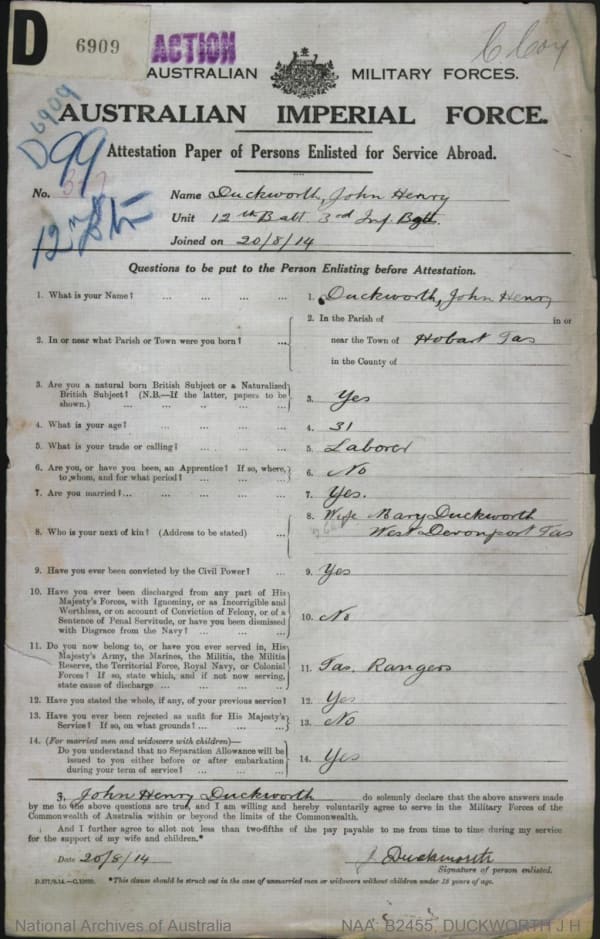 D 6909
ACTION
C Coy
AUSTRALIAN MILITARY FORCES.
AUSTRALIAN IMPERIAL FORCE.
Attestation Paper of Persons Enlisted for Service Abroad.
D6909
99
12th Btn
No.
Name Duckworth, John Henry
Unit 12th Batt 3rd Inf. Bgde.
Joined on 20/8/14
Questions to be put to the Person Enlisting before Attestation.
1. What is your Name? ... ... ... ... 1. Duckworth, John Henry
2. In or near what Parish or Town were you born? ... 2. In the Parish of in or
near the Town of Hobart Tas
in the County of
3. Are you a natural born British Subject or a Naturalized
British Subject? (N.B.—If the latter, papers to be
shown.) ... ... ... ... 3. Yes
4. What is your age? ... ... ... ... 4. 31
5. What is your trade or calling? ... ... ... 5. Laborer
6. Are you, or have you been, an Apprentice? If so, where,
to whom, and for what period? ... ... ... 6. No
7. Are you married? ... ... ... ... 7. Yes.
8. Who is your next of kin? (Address to be stated) ... 8. Wife Mary Duckworth
West Devonport Tas
9. Have you ever been convicted by the Civil Power? ... 9. Yes
10. Have you ever been discharged from any part of His
Majesty's Forces, with Ignominy, or as Incorrigible and
Worthless, or on account of Conviction of Felony, or of a
Sentence of Penal Servitude, or have you been dismissed
with Disgrace from the Navy? ... ... ... 10. No
11. Do you now belong to, or have you ever served in, His
Majesty's Army, the Marines, the Militia, the Militia
Reserve, the Territorial Force, Royal Navy, or Colonial
Forces? If so, state which, and if not now serving,
state cause of discharge ... ... ... 11. Tas. Rangers
12. Have you stated the whole, if any, of your previous service? 12. Yes
13. Have you ever been rejected as unfit for His Majesty's
Service? If so, on what grounds? ... ... ... 13. No
14. (For married men and widowers with children)—
Do you understand that no Separation Allowance will be
issued to you either before or after embarkation
during your term of service? ... ... ... 14. Yes
I, John Henry Duckworth do solemnly declare that the above answers made
by me to the above questions are true, and I am willing and hereby voluntarily agree to serve in the Military Forces of the
Commonwealth of Australia within or beyond the limits of the Commonwealth.
And I further agree to allot not less than two-fifths of the pay payable to me from time to time during my service
for the support of my wife and children.*
Date 20/8/14 J Duckworth
Signature of person enlisted.
D.277/8.14.—C.10939. *This clause should be struck out in the case of unmarried men or widowers without children under 18 years of age.
National Archives of Australia NAA: B2455, DUCKWORTH J H